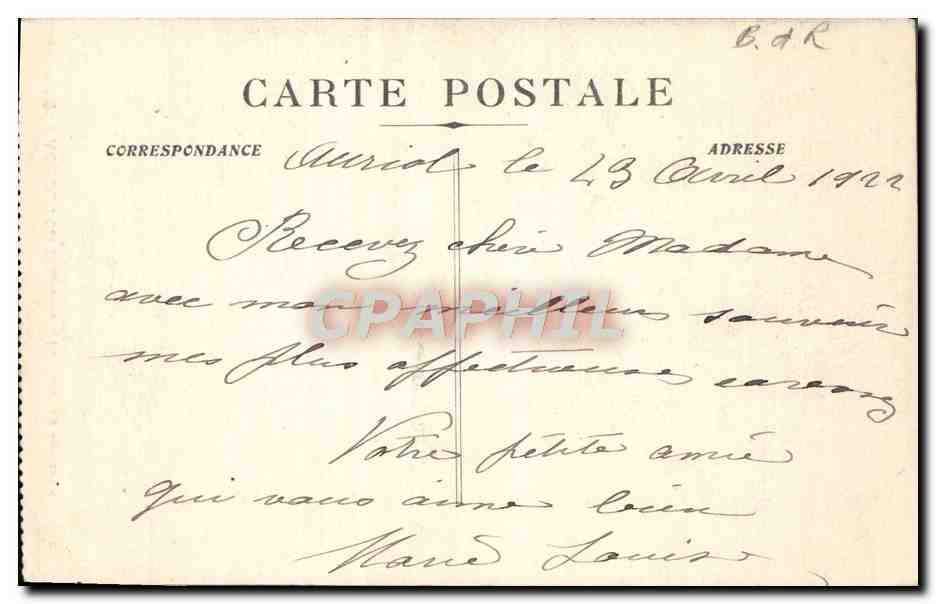 B. d R
CARTE POSTALE
CORRESPONDANCE
ADRESSE
Auriol le 23 Avril 1922
Recevez chère Madame
avec mon meilleur souvenir
mes plus affectueuses caresses
Votre petite amie
qui vous aime bien
Marie Louise
CPAPHIL